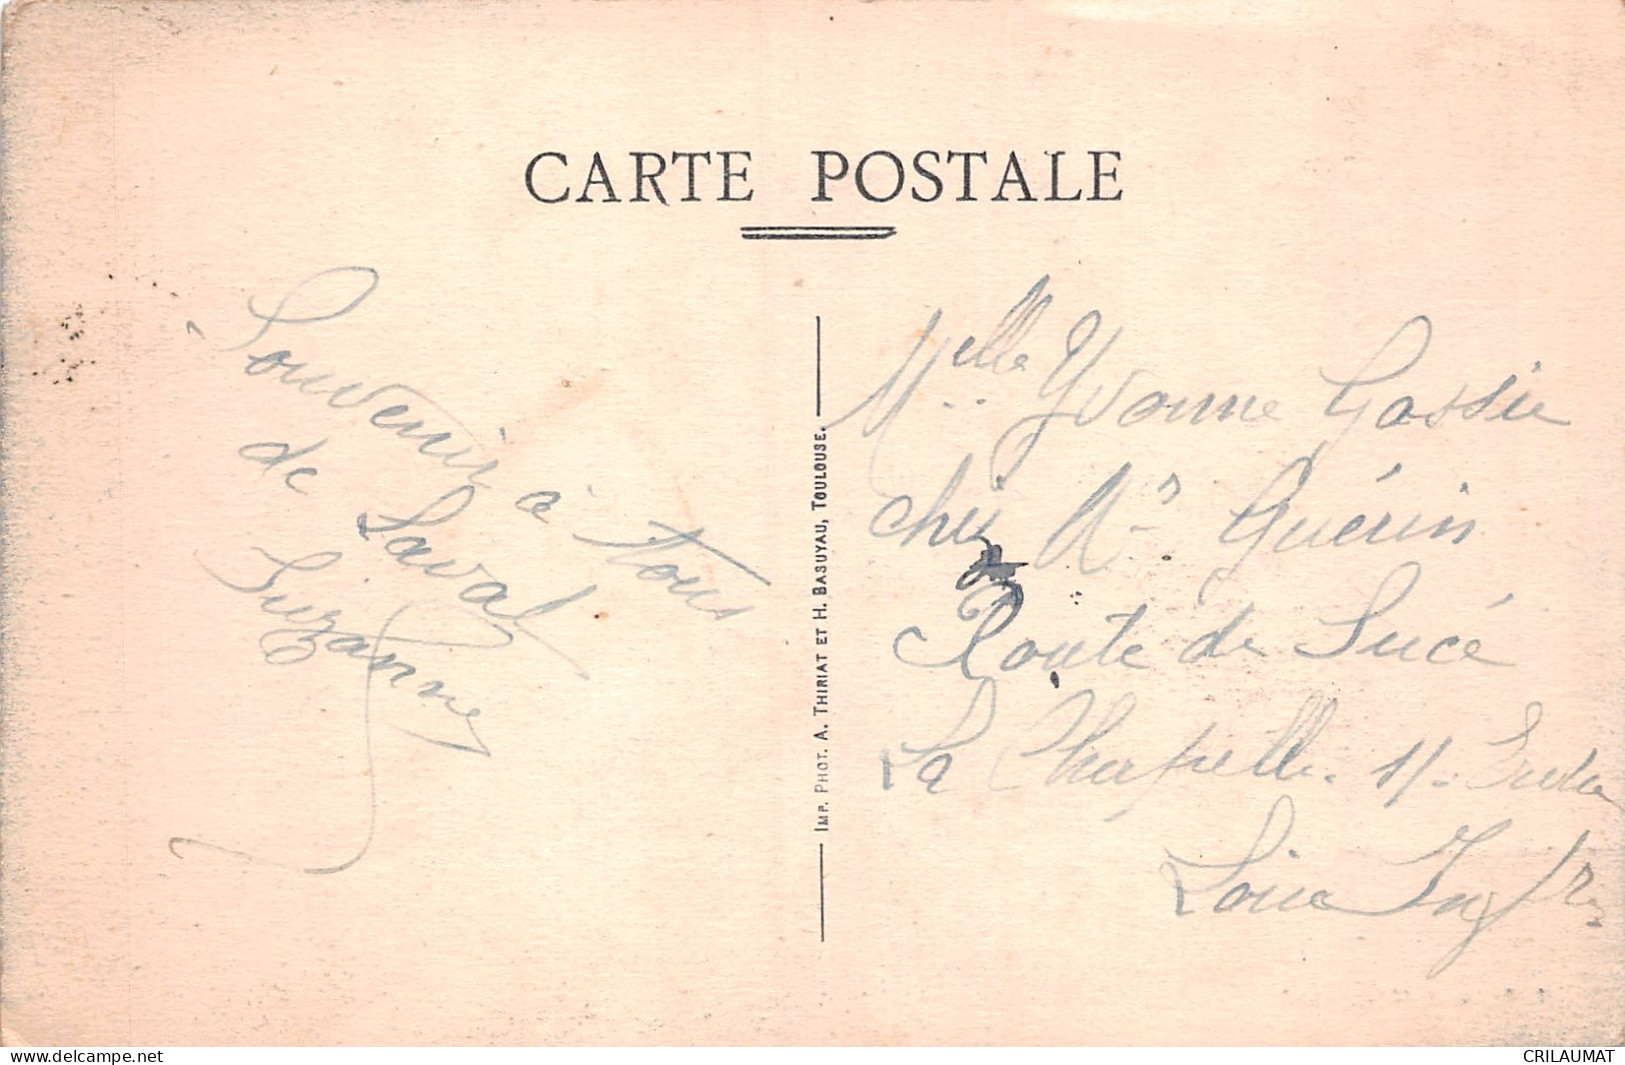 CARTE POSTALE
Souvenir à tous
de Laval
Suzanne
IMP. PHOT. A. THIRIAT ET H. BASUYAU, TOULOUSE.
Melle Yvonne Gassie
chez Mr Guérin
Route de Sucé
La Chapelle s/ Erdre
Loire Infre
www.delcampe.net
CRILAUMAT